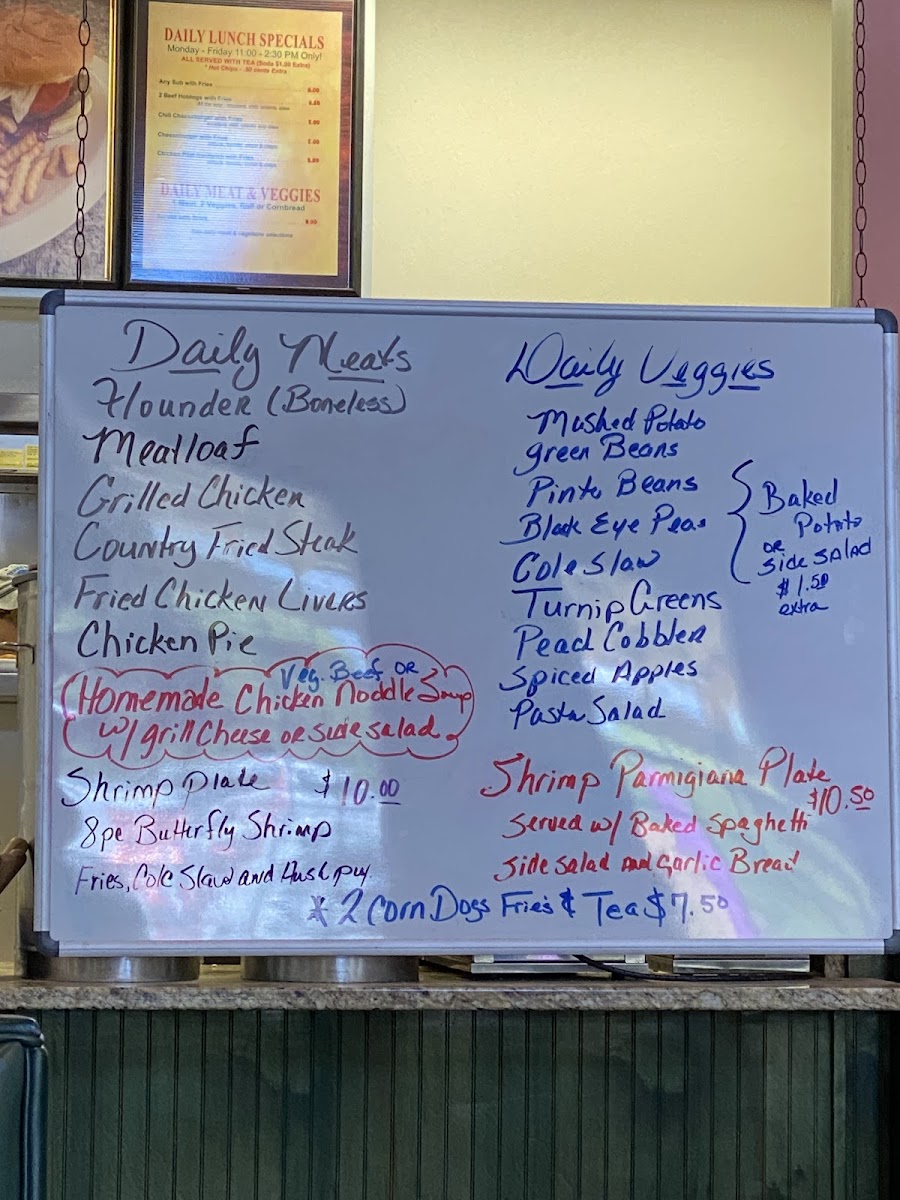 DAILY LUNCH SPECIALS
Monday - Friday 11:00 - 2:30 PM Only!
ALL SERVED WITH TEA (Soda $1.00 Extra)
* Hot Chips - .50 cents Extra
Any Sub with Fries
2 Beef Hotdogs with Fries
Chili Cheeseburger with Fries
Cheeseburger with Fries
Chicken Filet Sandwich with Fries
DAILY MEAT & VEGGIES
1 Meat, 2 Veggies, Roll or Cornbread
Daily Meats
Flounder (Boneless)
Meatloaf
Grilled Chicken
Country Fried Steak
Fried Chicken Livers
Chicken Pie
Veg. Beef OR
Homemade Chicken Noddle Soup
w/ grill Cheese or side salad
Shrimp Plate $10.00
8pc Butterfly Shrimp
Fries, Cole Slaw and Hush puy
Daily Veggies
Mashed Potato
green Beans
Pinto Beans
Black Eye Peas
Cole Slaw
Turnip Greens
Peach Cobbler
Spiced Apples
Pasta Salad
Baked
Potato
or
side SALAD
$1.50
extra
Shrimp Parmigiana Plate
$10.50
Served w/ Baked Spaghetti
side salad and Garlic Bread
* 2 Corn Dogs Fries & Tea $7.50